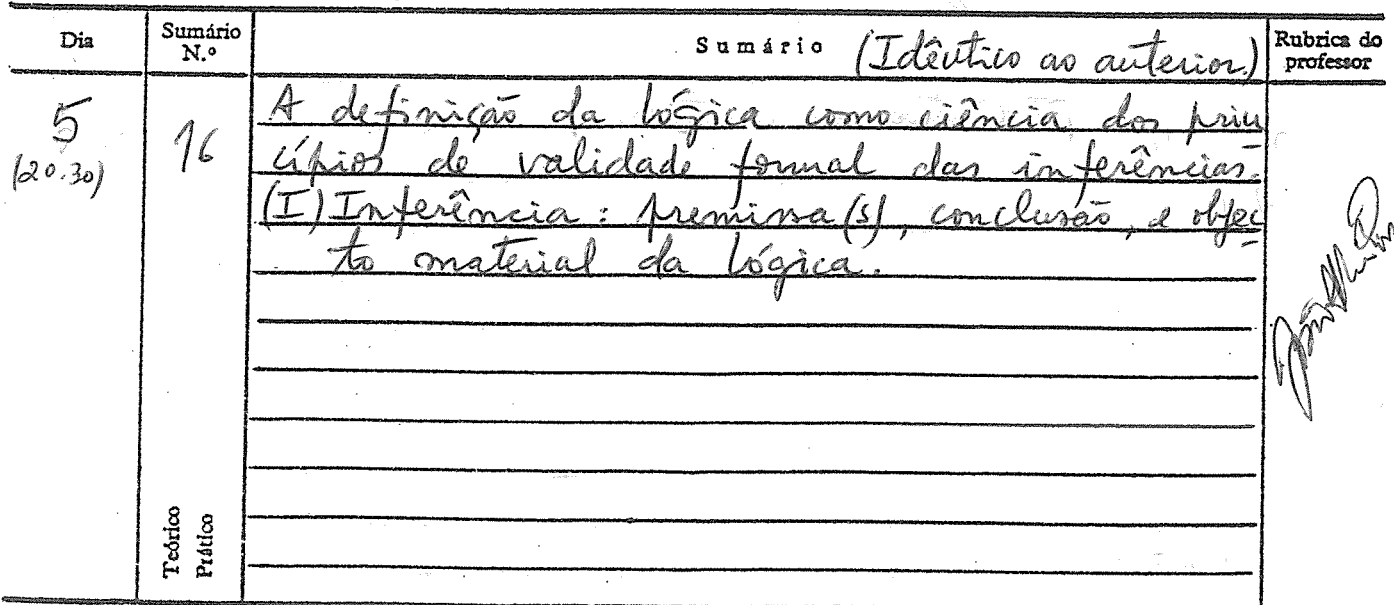 Dia
Sumário N.º
Sumário (Idêntico ao anterior.)
Rubrica do professor
5
(20.30)
16
A definição da lógica como ciência dos prin
cípios de validade formal das inferências.
(I) Inferência: premissa(s), conclusão, e objec
to material da lógica.
Teórico
Prático